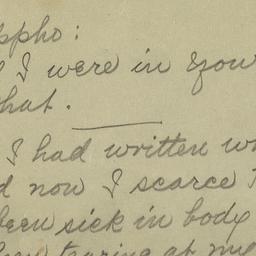 ppho:
I were in your
hat.
I had written w
d now I scarce
been sick in body
tearing at my